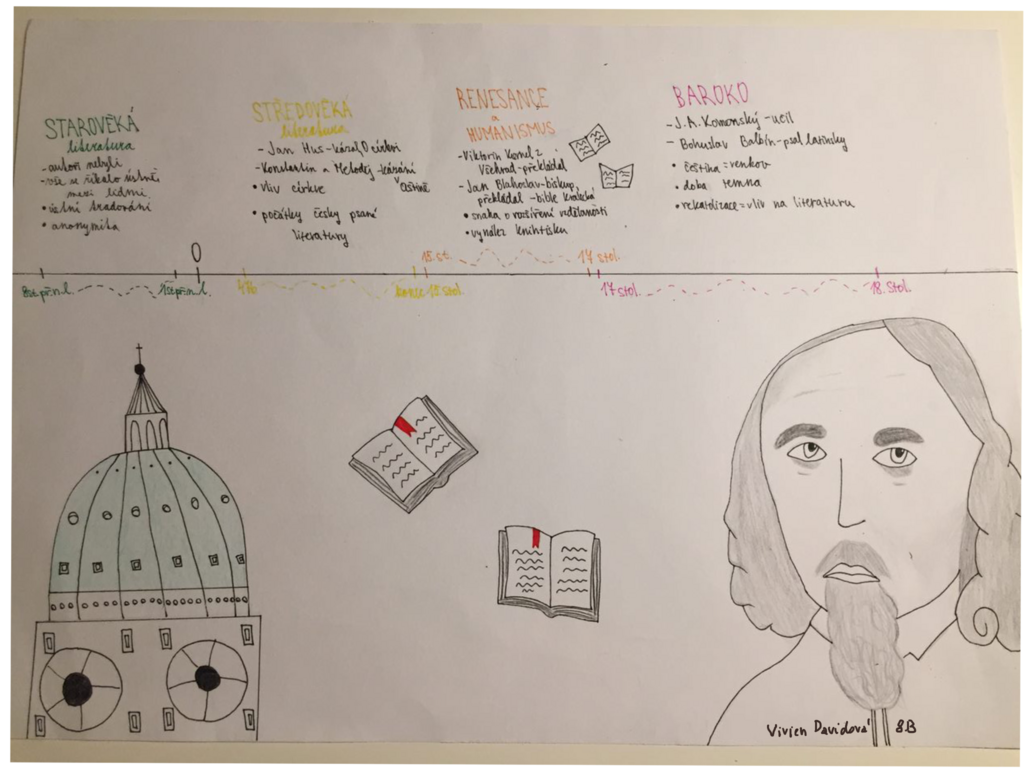 STAROVĚKÁ
literatura
- autoři nebyli
- vše se říkalo ústně
mezi lidmi
• ústní tradování
• anonymita
STŘEDOVĚKÁ
literatura
- Jan Hus - kázal o církvi
- Konstantin a Metoděj - kázání
čeština
• vliv církve
• počátky česky psané
literatury
RENESANCE
a
HUMANISMUS
- Viktorin Kornel z
Všehrad - překládal
- Jan Blahoslav - biskup,
překládal - bible kralická
• snaha o rozšíření vzdělanosti
• vynález knihtisku
BAROKO
- J.A. Komenský - učil
- Bohuslav Balbín - psal latinsky
• čeština = venkov
• doba temna
• rekatolizace = vliv na literaturu
0
8st.př.n.l.
1st.př.n.l.
476
konec 15 stol.
15.st.
17 stol.
17 stol.
18. stol.
Vivien Davidová 8.B